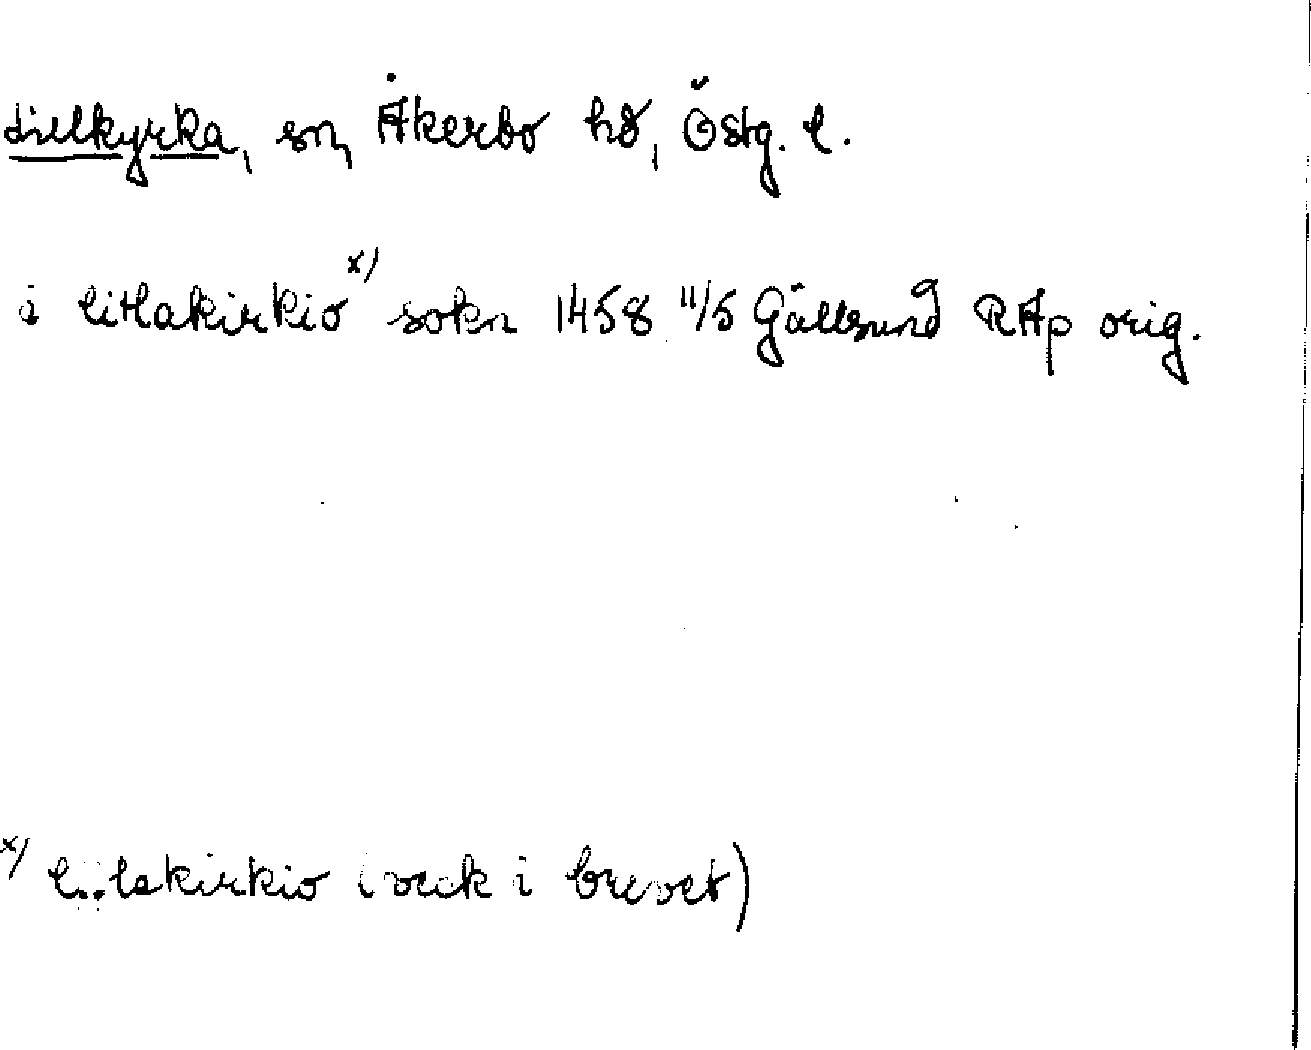 Lillkyrka, sn, Åkerbo hd, Östg. l.
i litlakirkio x) sokn 1458 11/5 Gällsund RAp orig.
x) l..lakirkio (veck i brevet)